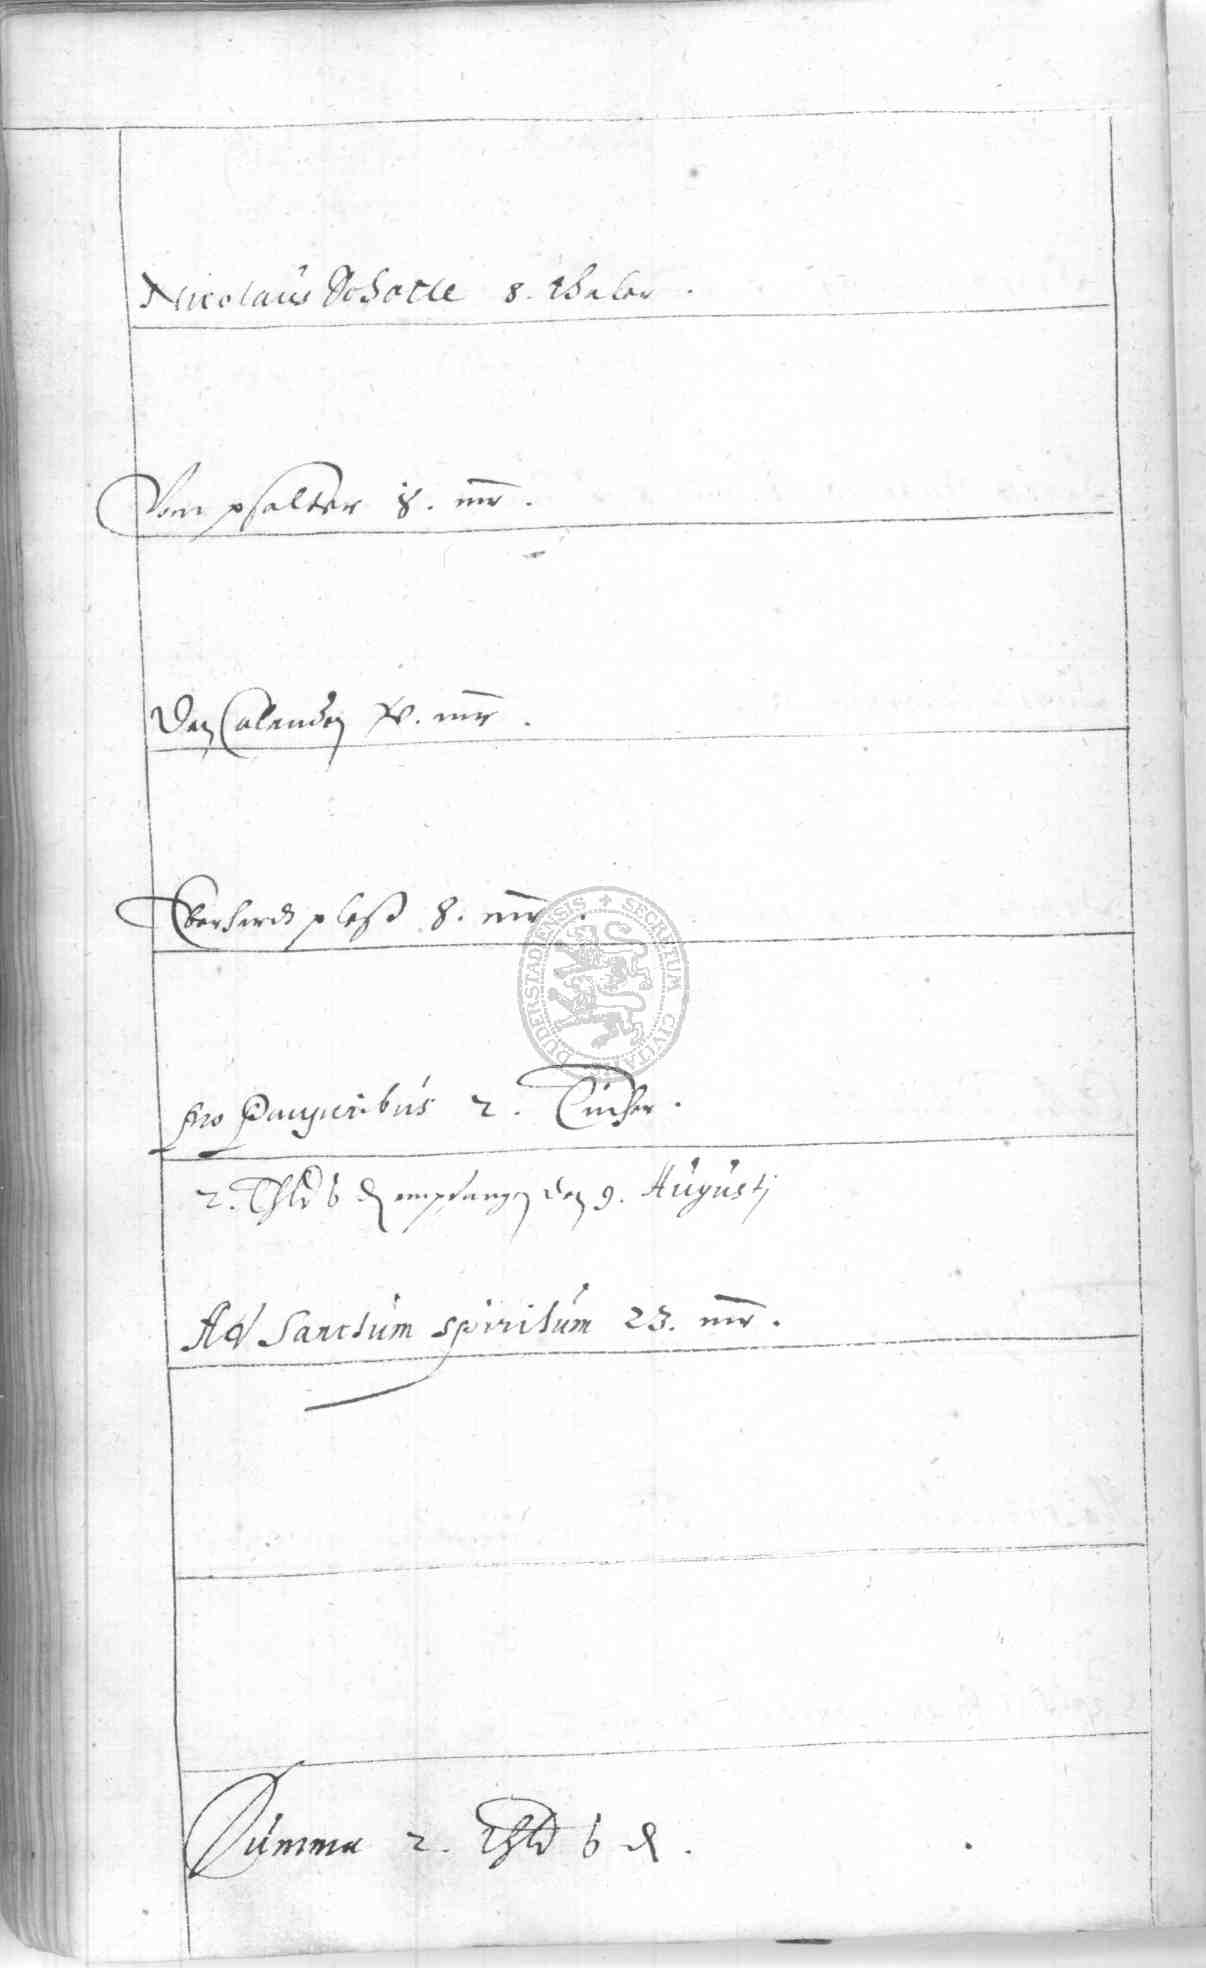 Nicolaus Schotte 8. thaler.
Vom psalter 8. mr.
Den Calenden mr.
Eberhardt pleß 8. mr.
pro Pauperibus 2. Tücher.
2. Thlr 6 d empfangen den 9. Augustj
Ad Sanctum spiritum 23. mr.
Summa 2. thlr 6 d.
DUDERSTADIENSIS + SECRETUM CIVITATIS